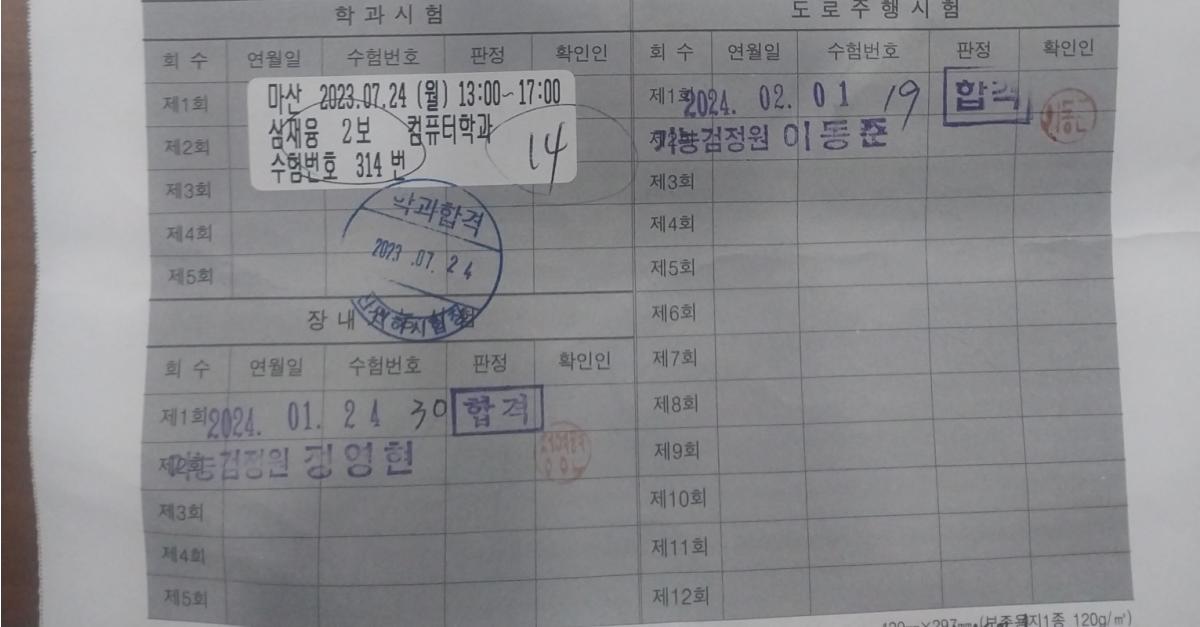 학 과 시 험
회 수 연월일 수험번호 판정 확인인
제1회
마산 2023.07.24 (월) 13:00~17:00
제2회
삼재융 2보 컴퓨터학과
14
수험번호 314 번
제3회
제4회
학과합격
제5회
2023 .07. 24
장 내
회 수 연월일 수험번호 판정 확인인
제1회 2024. 01. 24 30 합격
기능검정원 강영현
제3회
제4회
제5회
도 로 주 행 시 험
회 수 연월일 수험번호 판정 확인인
제1회 2024. 02. 01 19 합격
기능검정원 이동준
제3회
제4회
제5회
제6회
제7회
제8회
제9회
제10회
제11회
제12회
120g/㎡)